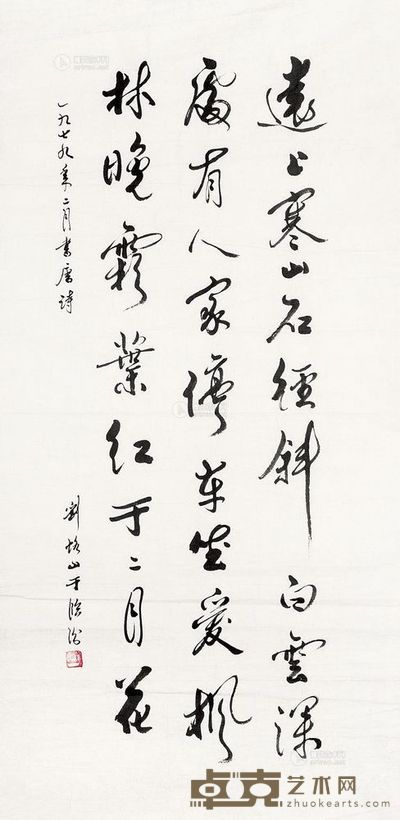 遠上寒山石徑斜白雲深
處有人家停車坐愛楓
林晚霜葉紅于二月花
一九七九年二月書唐詩
劉恪山于臨汾
卓克艺术网
zhuokearts.com